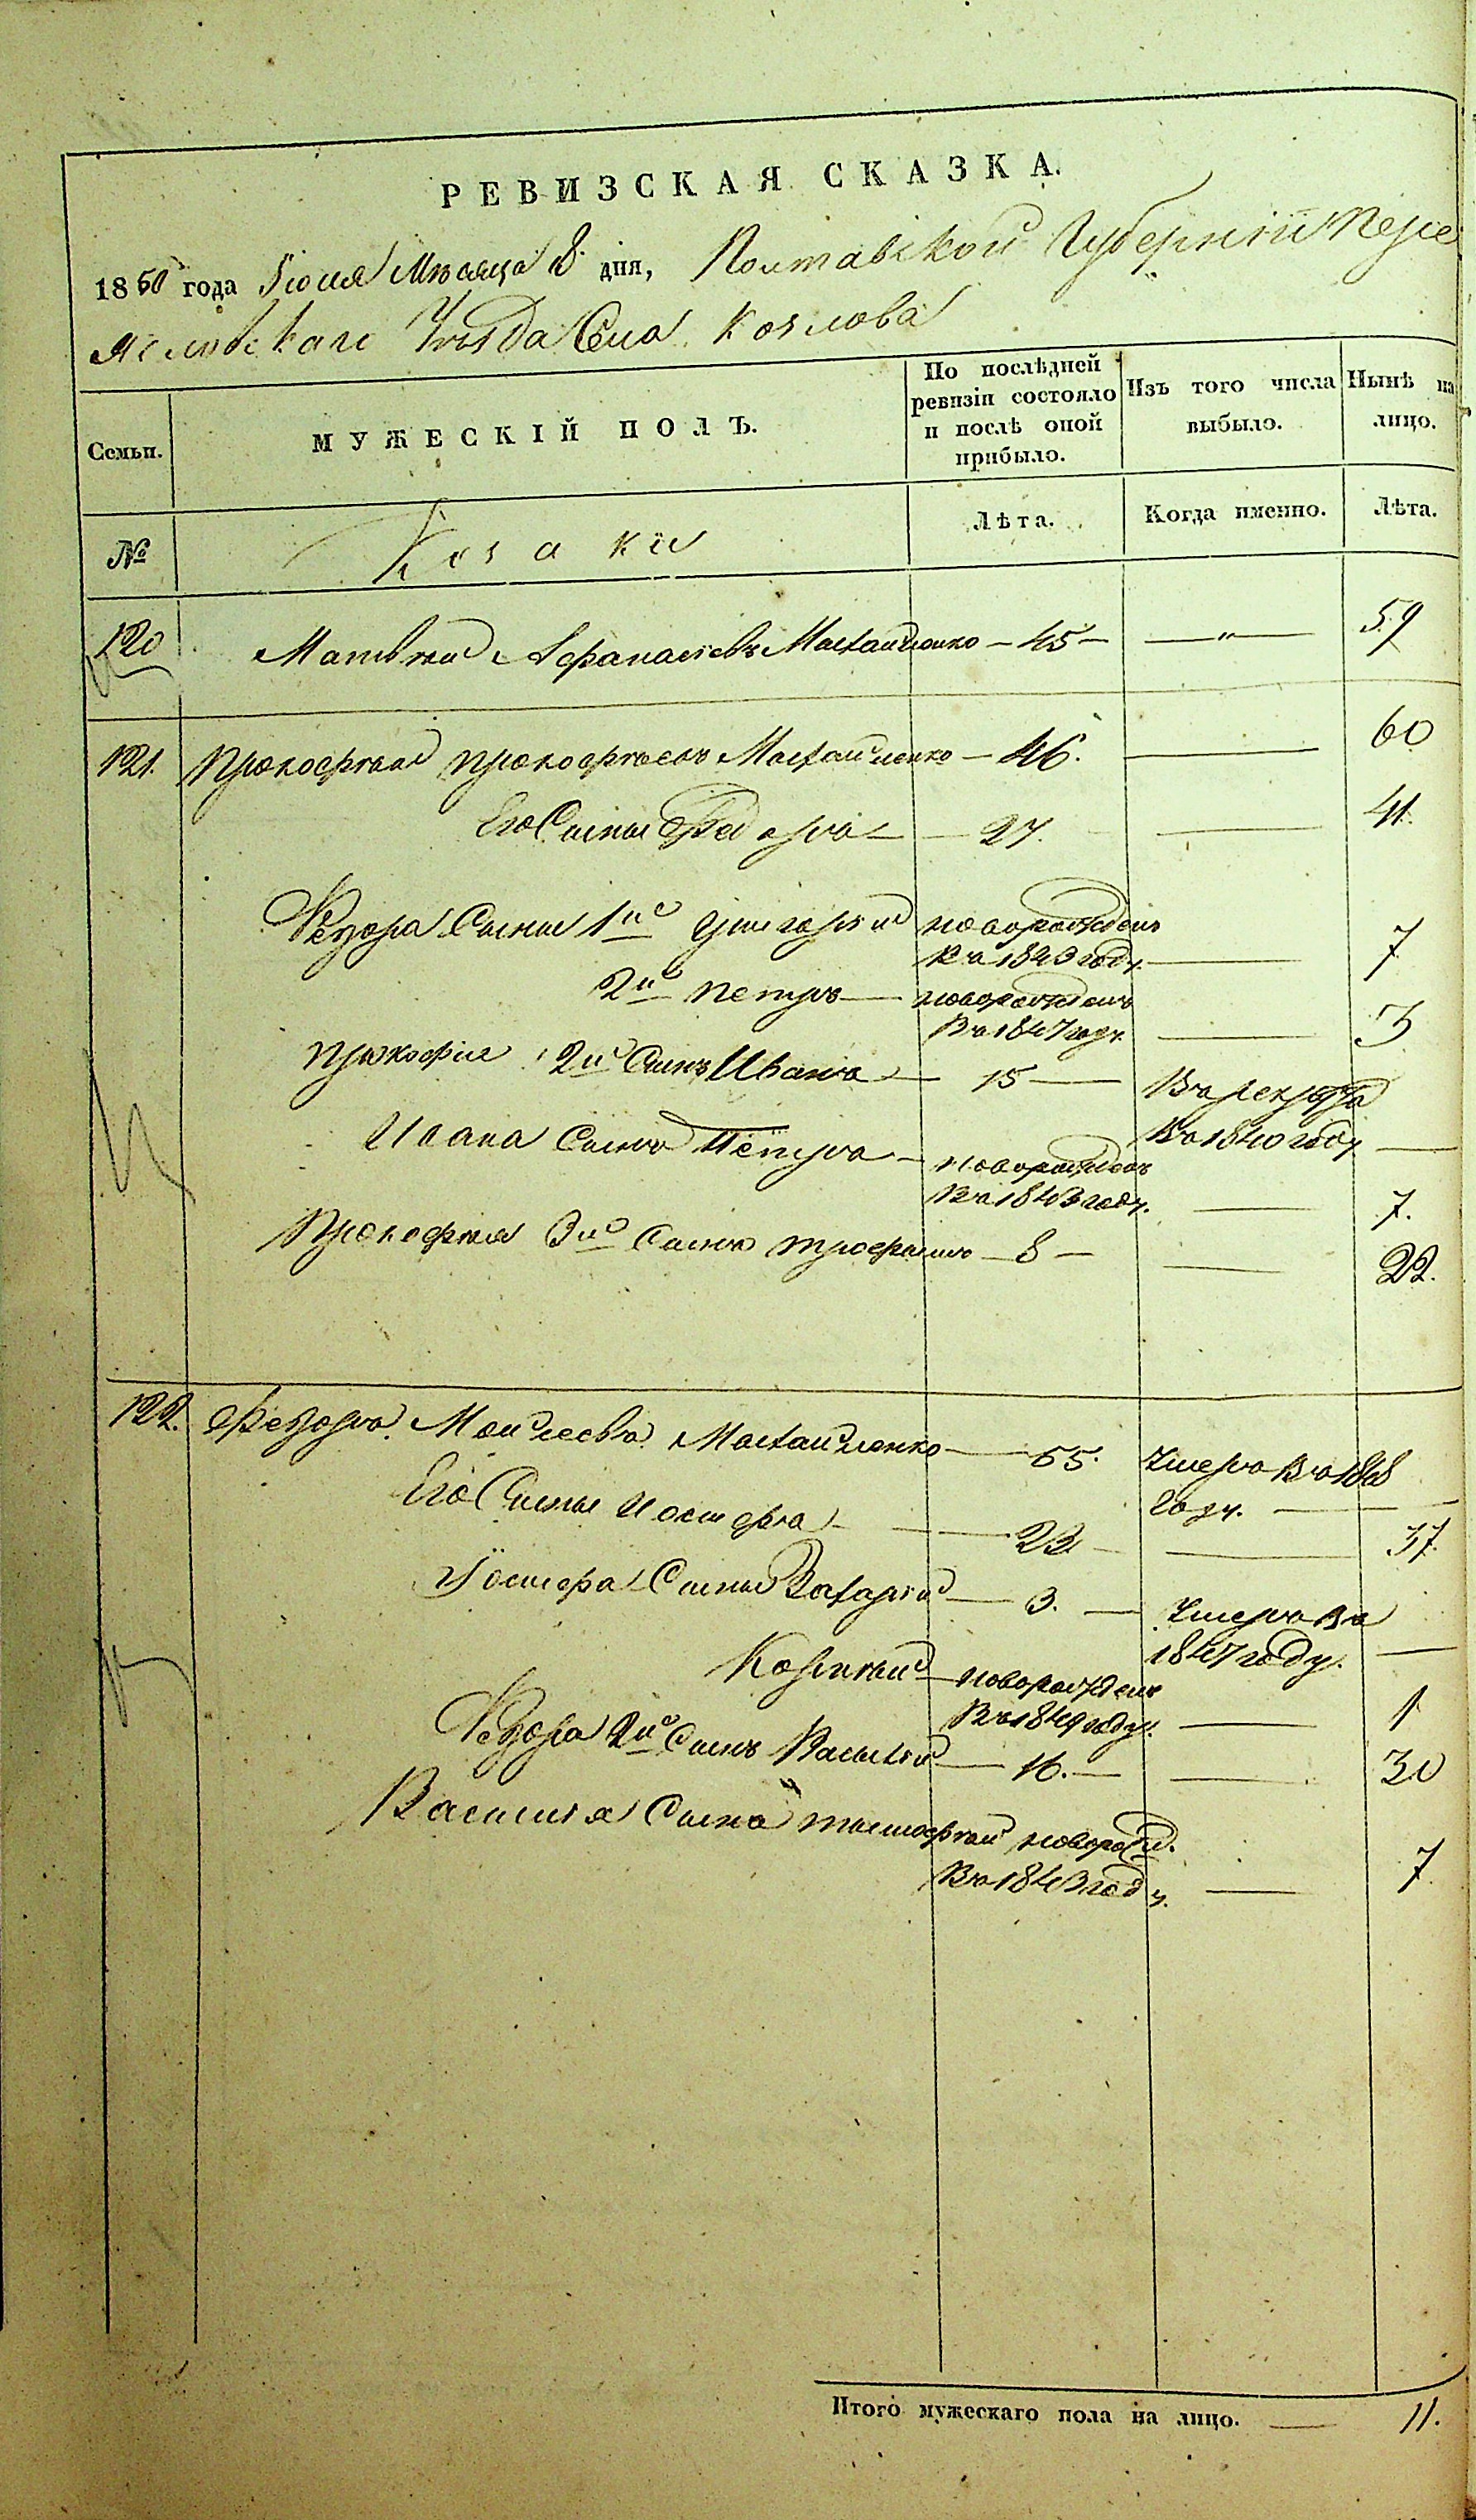 РЕВИЗСКАЯ СКАЗКА.
1850 года Іюля Мѣсяца 8 дня, Полтавской Губерніи Пере
яславскаго Уѣзда Села Козлова
Семьи.
МУЖЕСКІЙ ПОЛЪ.
По послѣдней ревизіи состояло и послѣ оной прибыло.
Изъ того числа выбыло.
Нынѣ на лицо.
№
Козаки
Лѣта.
Когда именно.
Лѣта.
120 Матвѣй Афанасіевъ — 45 — — „ — 59
121. Прокофій Прокофьевъ — 46. — 60
Его Сынъ Федоръ — 27. — 41.
Федора Сыны 1й Григорій новорожденъ
въ 1843 году. — 7
2й Петръ — новорожденъ
въ 1847 году. — 3
Прокофія 2й Сынъ Иванъ — 15 — Въ рекруты
въ 1840 году —
Ивана Сынъ Петръ — новорожденъ
въ 1843 году. — 7.
Прокофія 3й Сынъ Трофимъ — 8 — — 22.
122. Федоръ Моисеевъ — 55. Умеръ въ 1848
году. —
Его Сынъ Іосифъ — 23 — — 37.
Іосифа Сынъ Захарій — 3. — Умеръ въ
1847 году. —
Корнѣй — новорожденъ
въ 1849 году. — 1
Федора 2й Сынъ Василій — 16. — — 30
Василія Сынъ Тимофѣй новорожд.
въ 1843 году. — 7
Итого мужескаго пола на лицо. — 11.